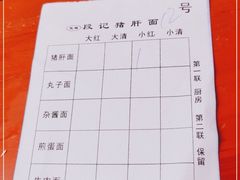 段记猪肝面 号
大红 大清 小红 小清
猪肝面
丸子面
杂酱面
煎蛋面
第一联 厨房 第二联 保留